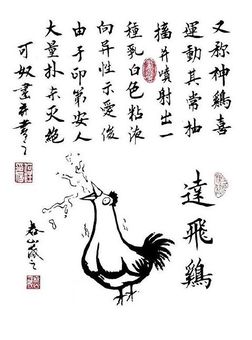 又称神鷄喜
運動其常抽
搐并噴射出一
種乳白色粘液
向异性示愛後
由于印第安人
大量扑杀灭絶
可奴畫并書之
達飛鷄